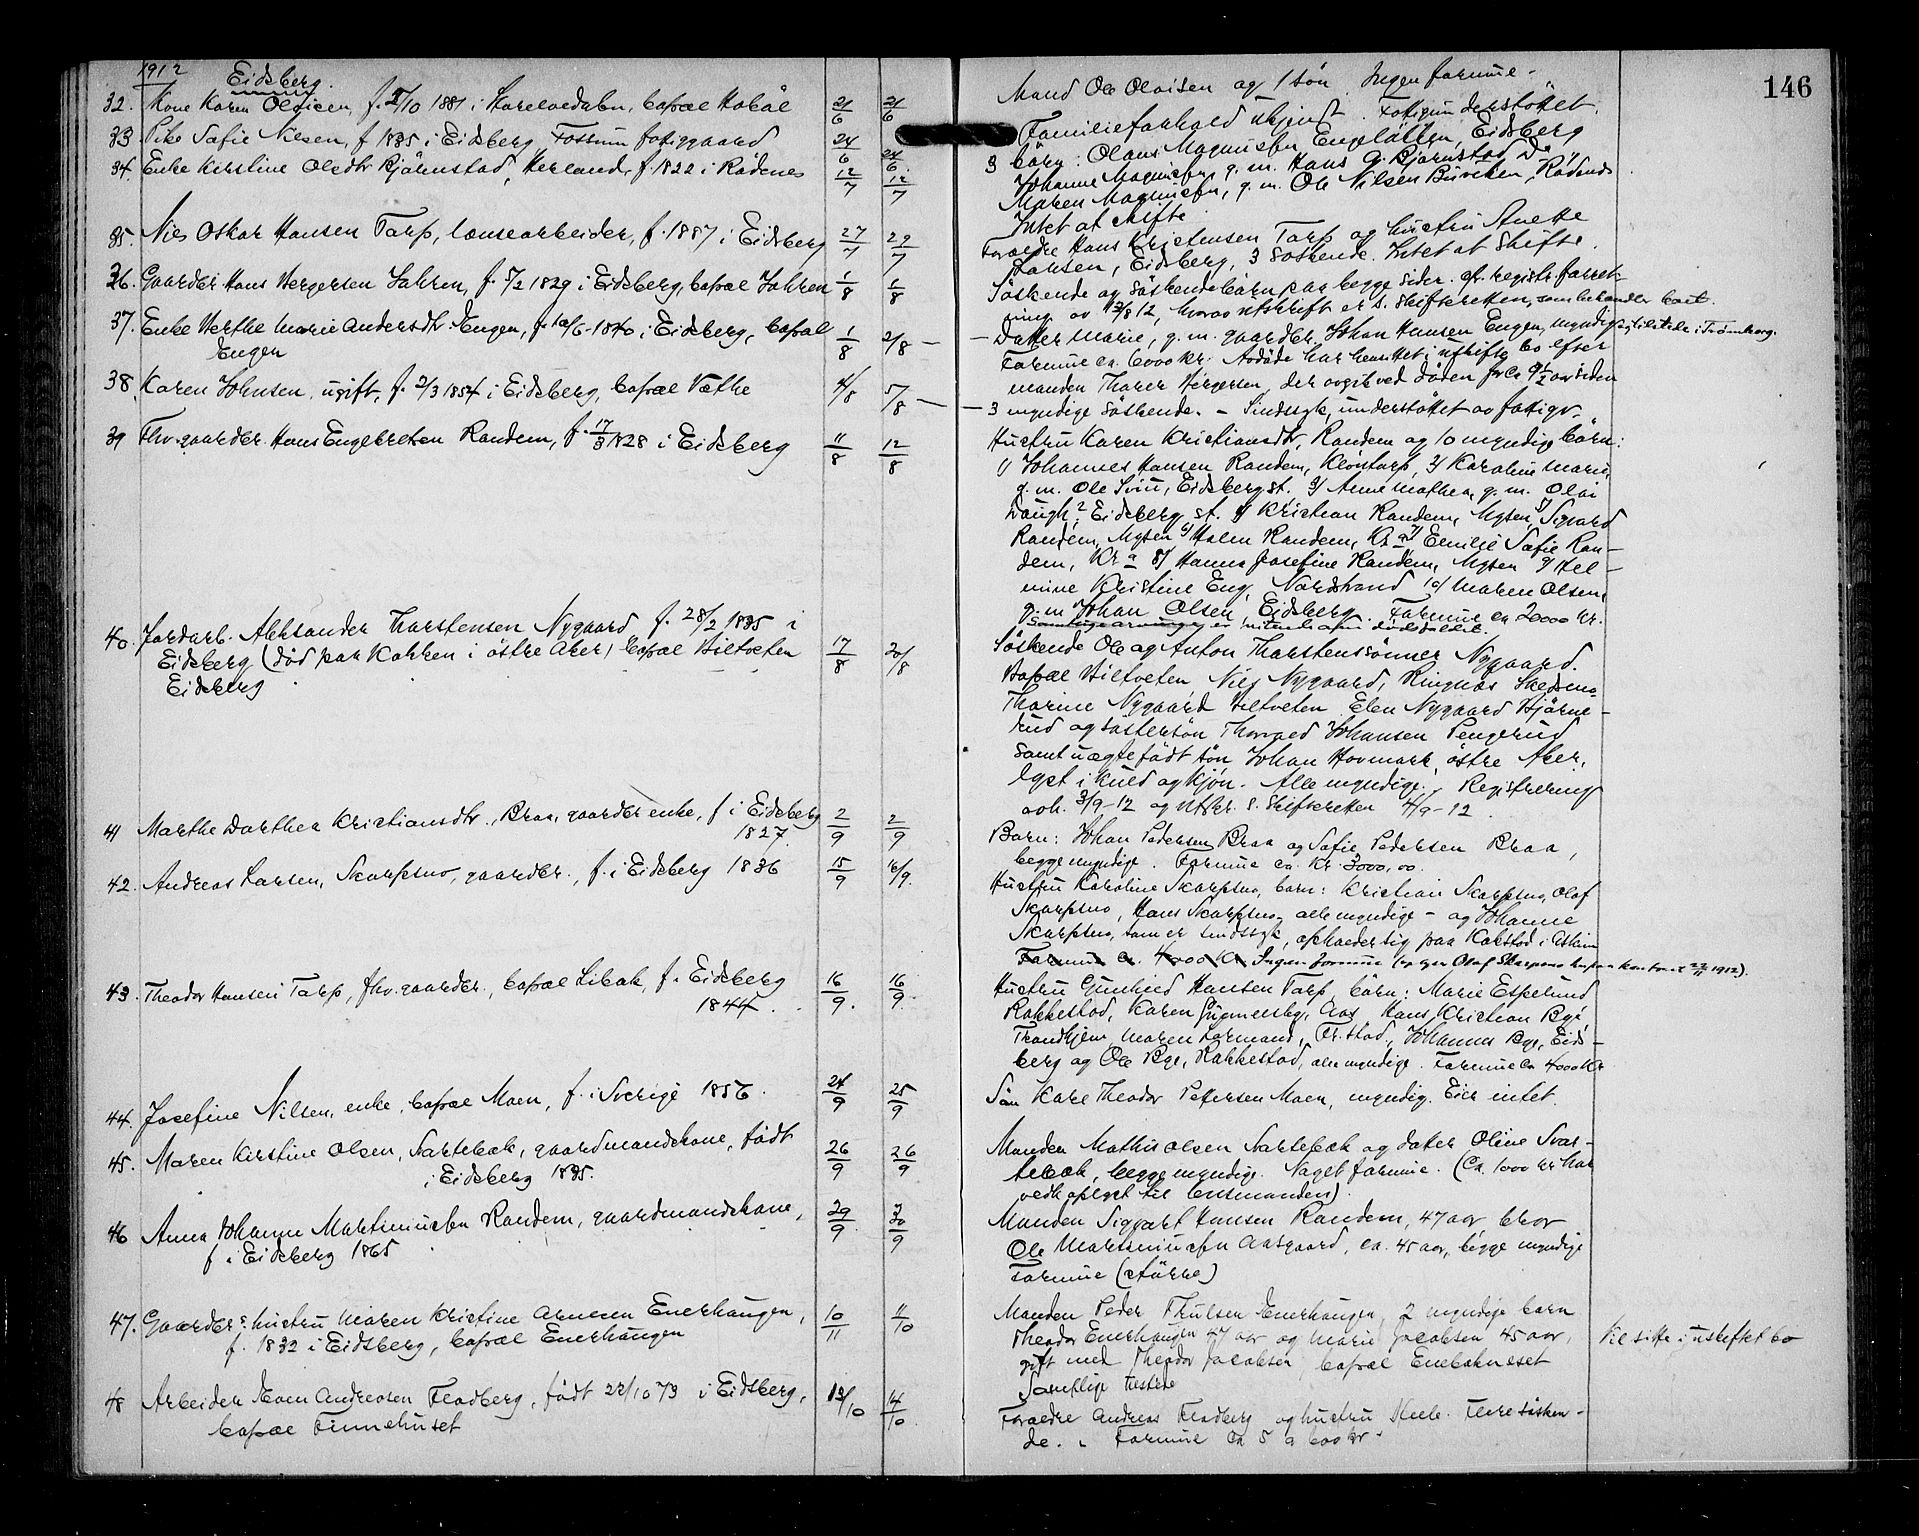 146
1912
Eidsberg.
32. Kone Karen Olaisen, f. 2/10 1881 i, bopæl Hobøl 21/6 21/6
Mand Ole Olaisen og 1 søn. Ingen formue.
33 Pike Sofie Nilsen, f 1835 i Eidsberg, Fossum fattiggaard 24/6 24/6
Familieforhold ukjendt. Fattigunderstøttet.
34. Enke Kirstine Olsdtr Bjørnstad, Herland, f. 1822 i Rødenes 12/7 12/7
3 børn: Olaus Magnusen Engeløkken, Eidsberg
Johanne Magnusen, g. m. Hans A. Bjørnstad Do
Maren Magnusen, g. m. Ole Nilsen Bureken, Rødenes
Intet at skifte
35. Nils Oskar Hansen Torp, lønsearbeider, f. 1887 i Eidsberg 27/7 29/7
Forældre Hans Kristensen Torp og hustru Anette
Johnsen, Eidsberg, 3 søskende. Intet at skifte.
36. Gaardbr Hans Herersen Jahren, f. 5/2 1829 i Eidsberg, bopæl Jahren 1/8 1/8
Søskende og søskendebørn paa begge sider. efr. registr. forret-
ning av 13/8 12, hvorav utskrift er s. skifteretten, som behandler boet.
37. Enke Berthe Marie Andersdtr Engen, f. 10/6 1840 i Eidsberg, bopæl 1/8 2/8 —
Engen
— Datter Marie, g. m. gaardbr. Johan Hansen Engen, myndig, tilstede i Trømborg.
Formue ca. 6000 kr. Avdøde har hensittet i uskifte bo efter
manden Thorer Hergersen, der avgik ved døden for ca 9½ aar siden
38. Karen Johnsen, ugift, f. 2/3 1854 i Eidsberg, bopæl Vethe 4/8 5/8 —
— 3 myndige søskende. – Sindssyk, understøttet av fattigv.
39 Fhv. gaardbr. Hans Engebretsen Randem, f. 17/3 1828 i Eidsberg 11/8 12/8
Hustru Karen Kristiansdtr. Randem og 10 myndige børn:
1/ Johannes Hansen Randem, Kløntorp, 2/ Karoline Marie,
g. m. Ole Sviu, Eidsberg st. 3/ Anne Mathea, g. m. Olai
Daugh?, Eidsberg st. 4/ Kristian Randem, Mysen, 5/ Sigvard
Randem, Mysen 6/ Halen Randem, Kr.a 7/ Emilie Sofie Ran-
dem, Kr.a 8/ Hanna Josefine Randem, Mysen 9/ Hel-
mine Kristine Eng, Nordstrand 10/ Maren Olsen,
g. m. Johan Olsen, Eidsberg. Formue ca 20000 kr.
Samtlige arvinger er vitende om dødsfaldet.
40. Jordarb. Aleksander Thorstensen Nygaard f. 28/2 1835 i
Eidsberg (død paa Kokken i østre Aker) bopæl Biltveten 17/8 20/8
Eidsberg
Søskende Ole og Anton Thorstensønner Nygaard.
Bopæl Biltveten Nils Nygaard, Ringnæs Skedsmo
Thorine Nygaard Biltveten Elen Nygaard Bjørne-
rud og søstersøn Thorvald Johansen Pengerud
samt uægtefødt søn Johan Hovmark, østre Aker,
lyst i kuld og kjøn. Alle myndige. Registrering
avh. 3/9-12 og utskr. s. skifteretten 4/9-12.
41 Marthe Dorthea Kristiansdtr., Braa, gaardbr enke, f i Eidsberg 2/9 2/9
1827.
Barn: Johan Pedersen Braa og Sofie Pedersen Braa,
begge myndige. Formue ca. Kr. 3000,00.
42. Andreas Larsen, Skarpsno, gaardbr., f. i Eidsberg 1836 15/9 16/9.
Hustru Karoline Skarpsno, barn: Kristian Skarpsno, Olaf
Skarpsno, Hans Skarpsno, alle myndige – og Johanne
Skarpsno, som er sindssyk, opholder sig paa Kolstad i Askim
Formue ca. 4000 kr Ingen formue (op Olaf Skarpsno kontrakt 22/11 1912).
43. Theodor Hansen Torp, fhv. gaardbr., bopæl Libak, f. Eidsberg 16/9. 16/9.
1844.
Hustru Gunhild Hansen Torp, børn: Marie Espelund
Rakkestad, Karen Gugmeelsby, Aas, Hans Kristian Bye,
Trondhjem, Maren Lormand, Fr.stad, Johannes Bye, Eids-
berg og Ole Bye, Rakkestad, alle myndige. Formue ca 4000 kr
44. Josefine Nilsen, enke, bopæl Moen, f. i Sverige 1856. 24/9 25/9
Søn Karl Theodor Petersen Moen, myndig. Eier intet.
45. Maren Kirstine Olsen, Sartebæk, gaardmandskone, født 26/9 26/9
i Eidsberg 1835.
Manden Mathis Olsen Sartebæk og datter Oline Svar-
tebæk, begge myndige. Noget formue. (Ca. 1000 kr har
vedk opgivet til lensmanden).
46 Anna Johanne Martiniusen Randem, gaardmandskone, 29/9. 30/9
f. i Eidsberg 1865
Manden Sigvart Hansen Randem, 47 aar, bror
Ole Martiniusen Aasgaard, ca. 45 aar, begge myndige
Formue (større)
47. Gaardbr.s hustru Maren Kristine Arnesen Enerhaugen, 10/11 11/10
f. 1832 i Eidsberg, bopæl Enerhaugen
Manden Peder Thulsen Enerhaugen, 2 myndige barn
Theodor Enerhaugen 47 aar og Marie Jacobsen 45 aar,
gift med Theodor Jacobsen bopæl Enebakneset
Samtlige tilstede
Vil sitte i uskiftet bo
48 Arbeider Even Andreasen Fladberg, født 22/10 73 i Eidsberg, 13/10 14/10
bopæl Finnehuset
Forældre Andreas Fladberg og hustru Helle. Flere søsken-
de. Formue ca 5 a 600 kr.